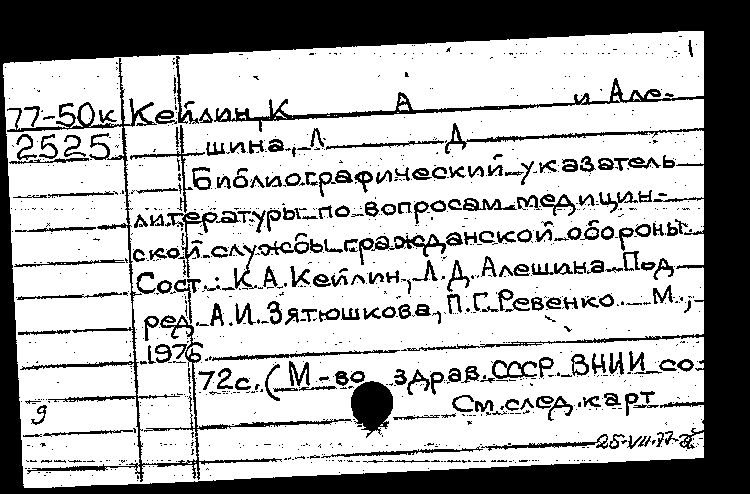 1
77-50к Кейлин, К А и Але-
2525 шина, Л Д
Библиографический указатель
литературы по вопросам медицин-
ской службы гражданской обороны.
Сост.: К.А. Кейлин, Л.Д. Алешина. Под
ред. А.И. Зятюшкова, П.Г. Ревенко. М.,
1976
72с. (М-во здрав. СССР ВНИИ со-
9 См. след. карт
25-VII-77-